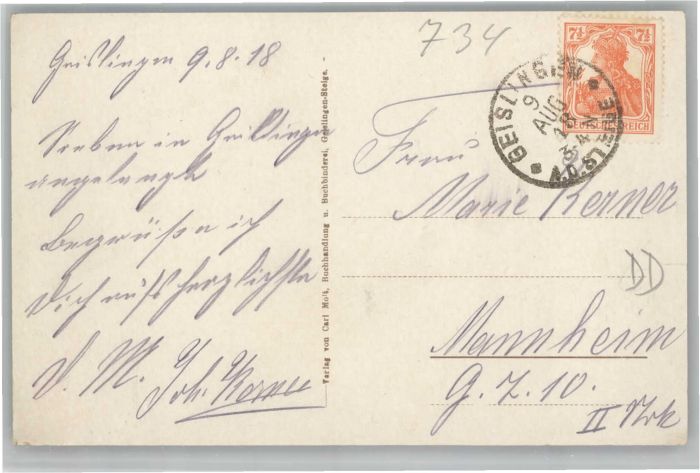 Geislingen 9.8.18
Soeben in Geislingen
angelangt
begrüße ich
Dich aufs herzlichste
D. M. Joh. Kerner
Verlag von Carl Moll, Buchhandlung u. Buchbinderei, Geislingen-Steige.
734
7½ 7½
DEUTSCHES REICH
GEISLINGEN
9 AUG 18
3-4 N
A.D. STEIGE
Frau
Marie Kerner
DD
Mannheim
G. 7. 10.
II